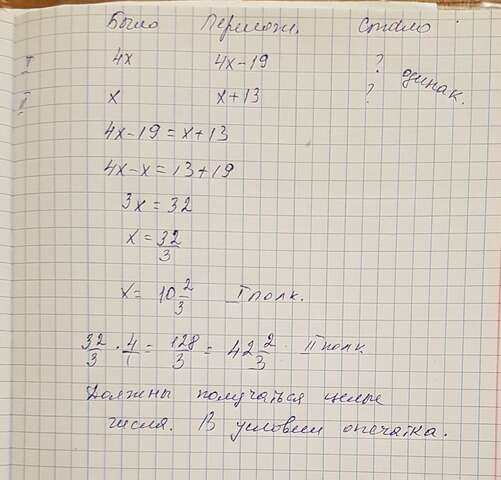 Было Перелож. Стало
I 4x 4x-19 ? одинак.
II x x+13 ?
4x-19 = x+13
4x-x = 13+19
3x = 32
x = 32/3
x = 10 2/3 I полк.
32/3 · 4/1 = 128/3 = 42 2/3 II полк.
Должны получаться целые
числа. В условии опечатка.